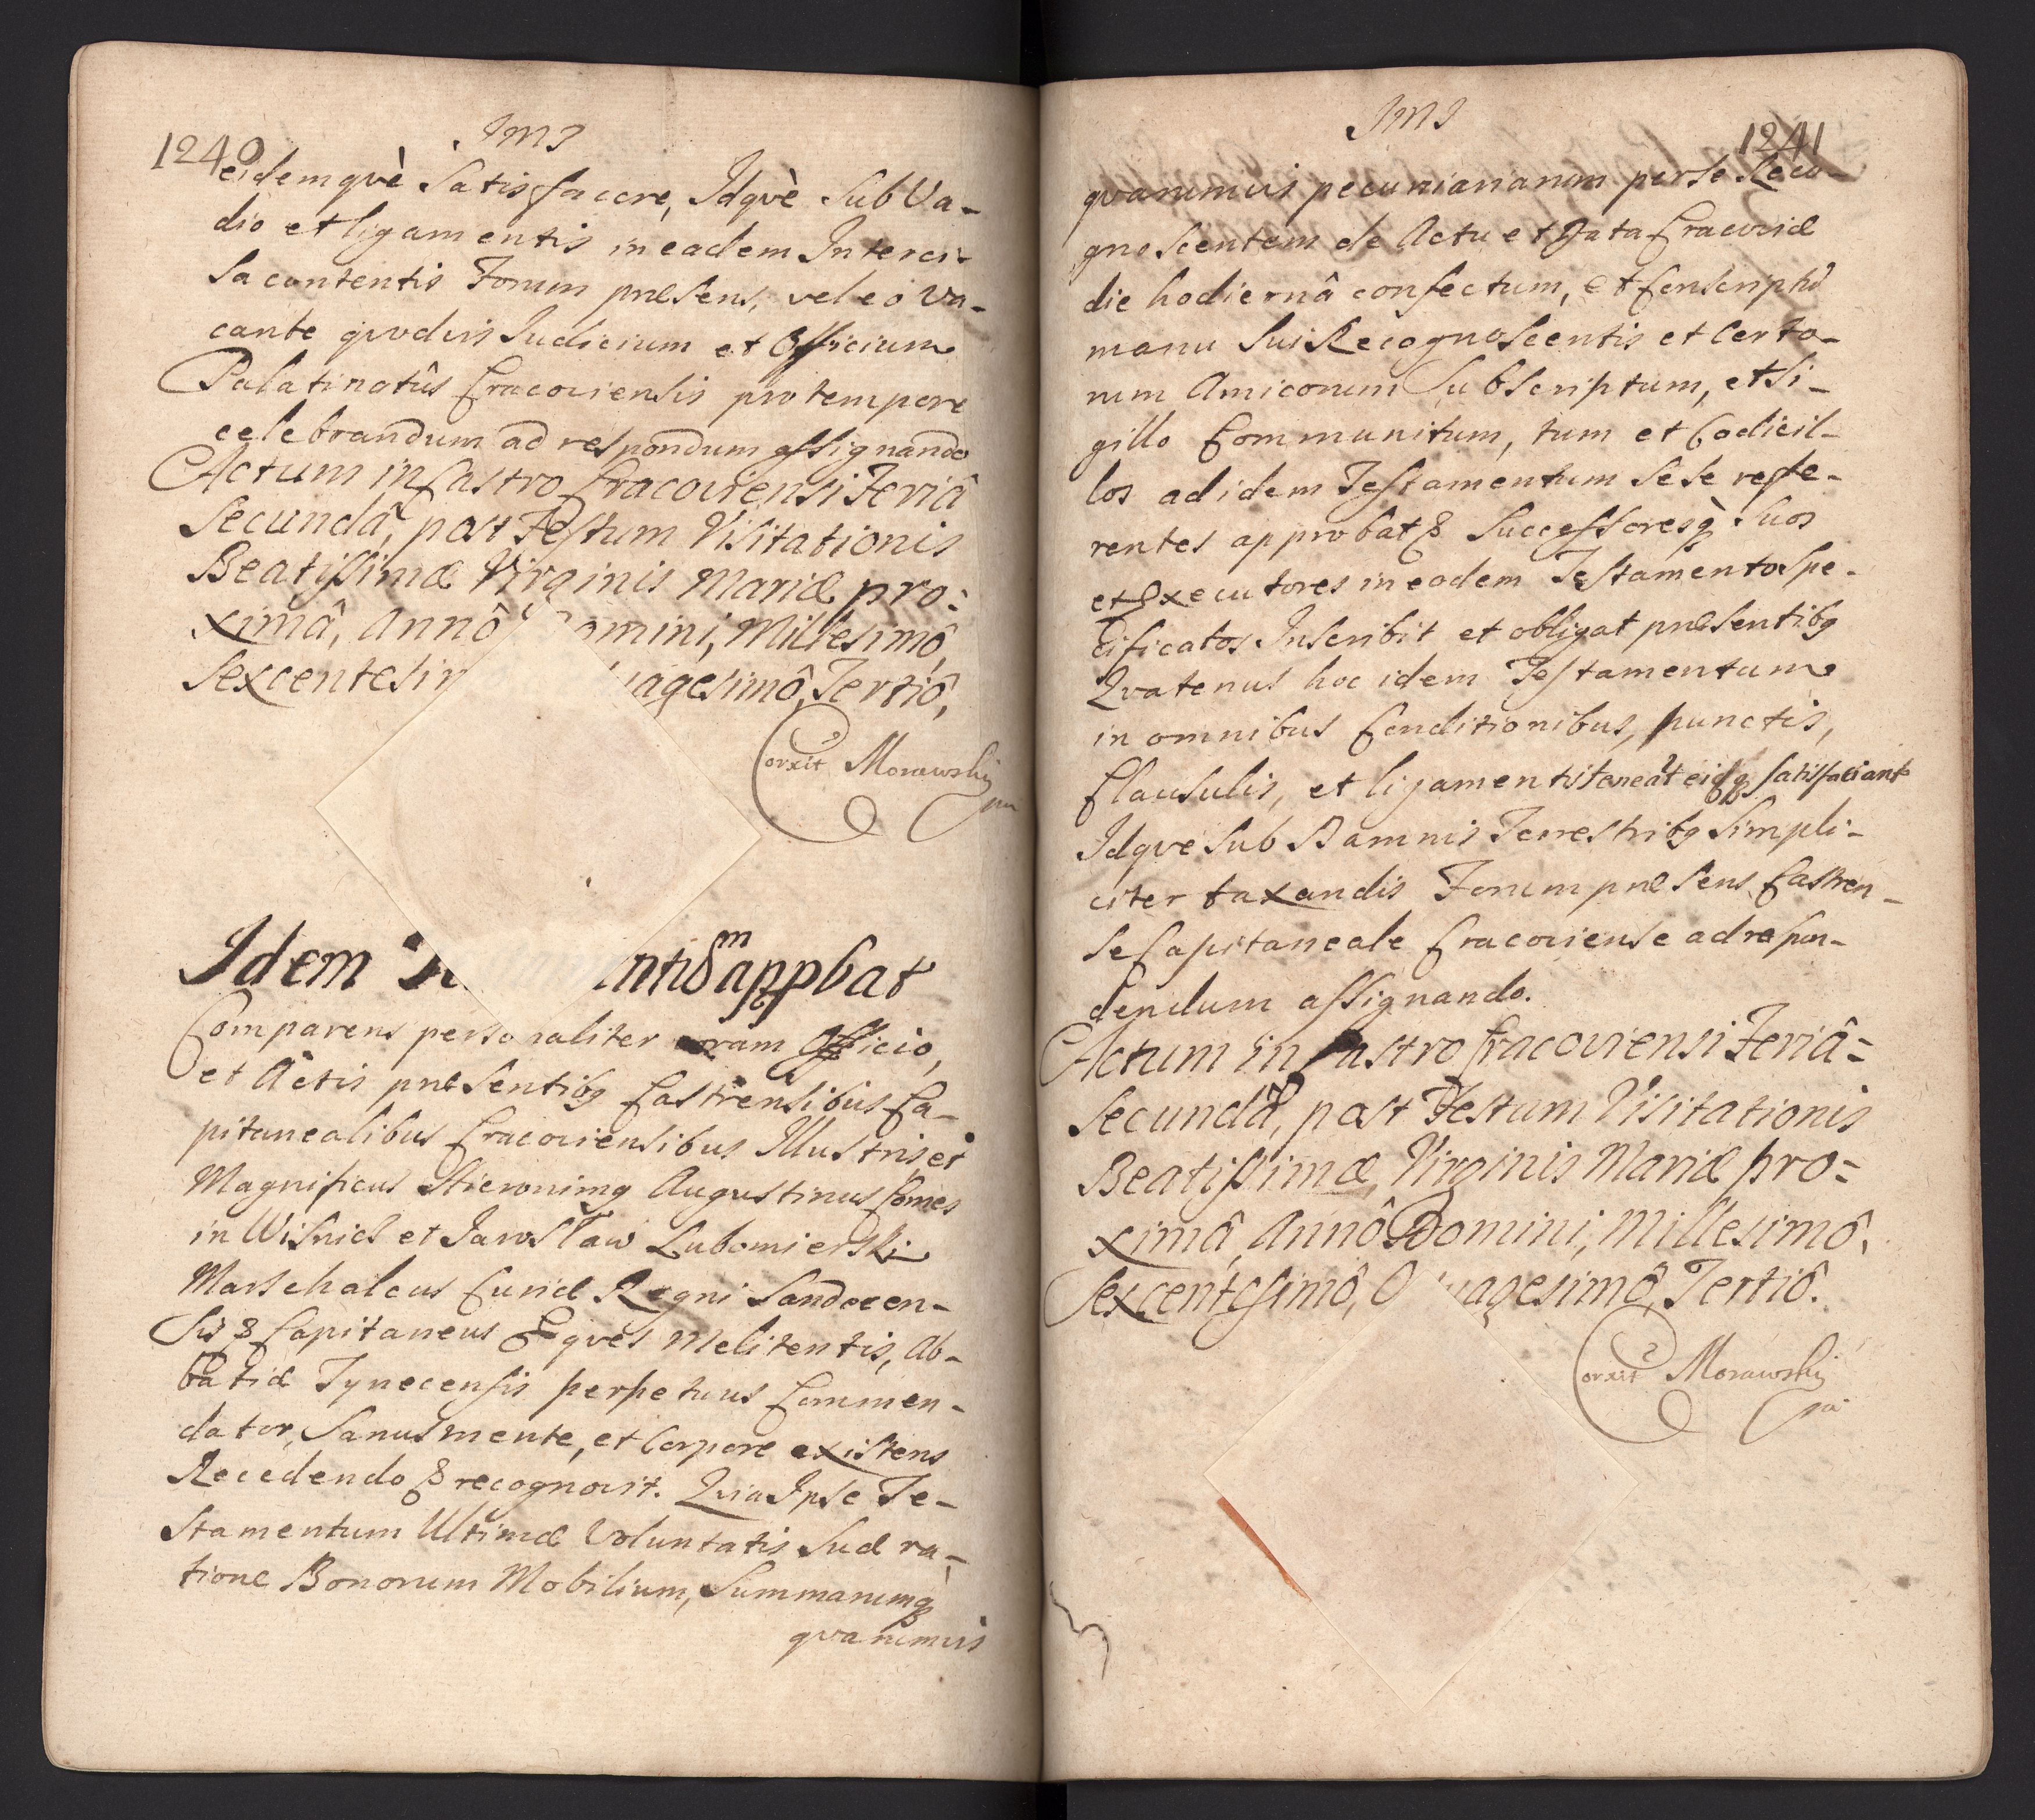 JMJ
1240
eidemqvè Satisfacere, Idqvè Sub Va-
dio et ligamentis in eadem Interci-
sa contentis Forum præsens, vel eo va-
cante qvodvis Judicium et Officium
Palatinatûs Cracoviensis pro tempore
celebrandum ad respondum assignando
Actum in Castro Cracoviensi Feriâ
Secundâ, post Festum Visitationis
Beatissimæ Virginis Mariæ pro:
ximâ, Annô Domini, Millesimô,
Sexcentesim agesimô, Tertiô,
Corxit Morawski
mp
Idem approbat
Comparens personaliter coram Officio,
et Actis præsentibq Castrensibus Ca-
pitanealibus Cracoviensibus Illustris, et
Magnificus Hieronimq Augustinus Comes
in Wisnicz et Jarosław Lubomierski
Marschalcus Curiæ Regni Sandecen-
sis & Capitaneus Eqves Melitentis, Ab-
batiæ Tynecensis perpetuus Commen-
dator, Sanus mente, et Corpore existens
Recedendo & recognovit. Qvia Ipse Te-
stamentum Ultimæ Voluntatis Suæ ra-
tione Bonorum Mobilium, Summarumq
qvarumvis
JMJ
1241
qvarumvis pecuniariarum per se Reco-
gnoscentem de Actu et Data Cracoviæ
die hodiernâ confectum, et Conscriptũ
manu Sui Recognoscentis et Certo-
rum Amicorum Subscriptum, et Si-
gillo Communitum, tum et Codicil-
los ad idem Testamentum Sese refe-
rentes approbat & Successoresq̀ Suos
et Executores in eodem Testamento Spe-
cificatos Inscribit et obligat præsentibq
Qvatenus hoc idem Testamentum
in omnibus Conditionibus, punctis,
Clausulis, et ligamentis teneãt eidq satisfaciant
Idqve Sub Damnis Terrestribq Simpli-
citer taxandis Forum præsens Castren-
se Capitaneale Cracoviense ad respon-
dendum assignando.
Actum in Castro Cracoviensi Feriâ=
Secundâ, post Festum Visitationis
Beatissimæ Virginis Mariæ pro=
ximâ, Annô Domini, Millesimô,
Sexcentesimô, O uagesimô, Tertiô.
Corxit Morawski
mp